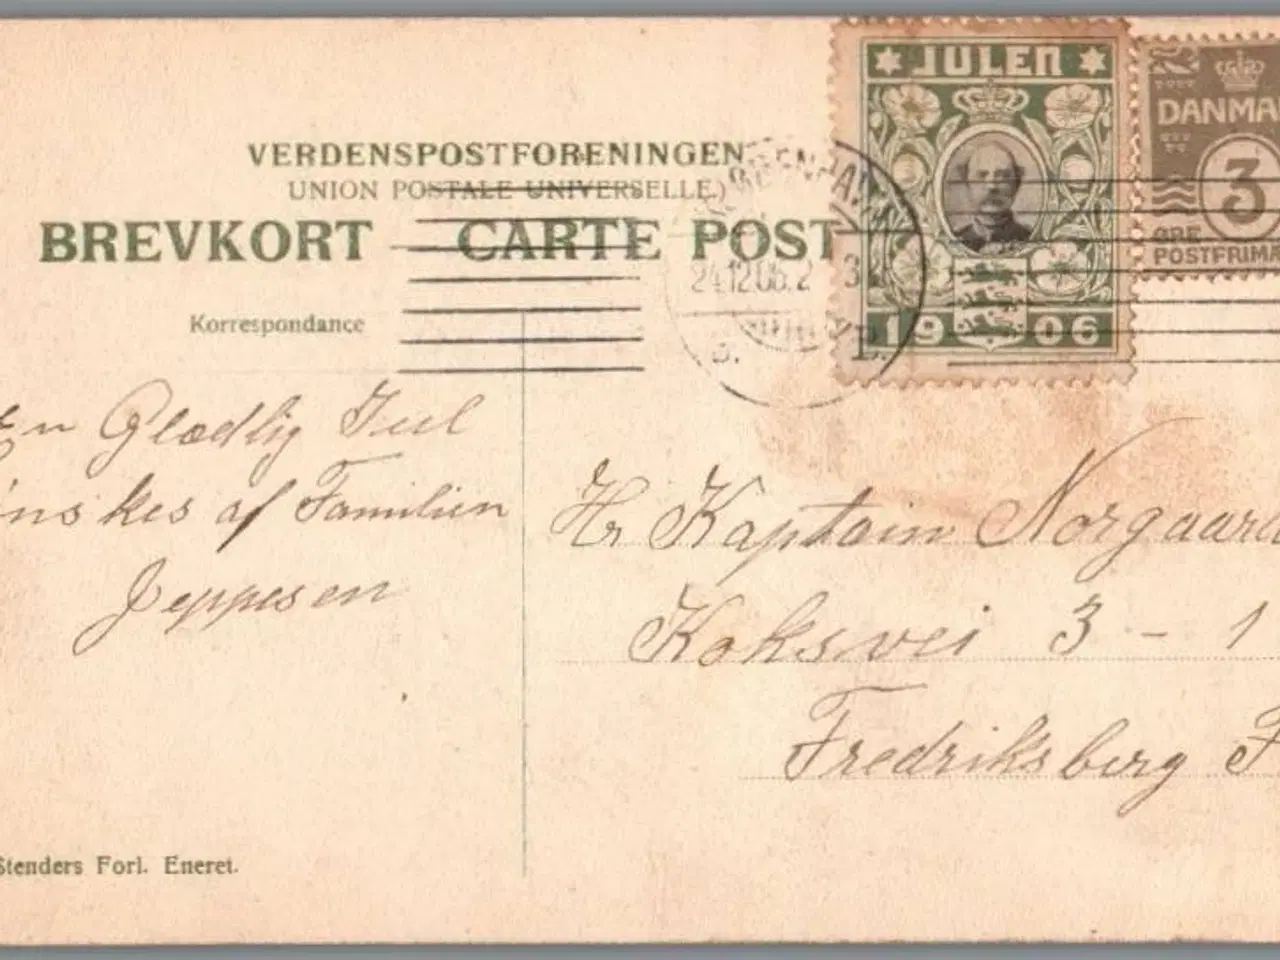 VERDENSPOSTFORENINGEN
UNION POSTALE UNIVERSELLE.)
BREVKORT CARTE POST
Korrespondance
JULEN
1906
DANMA
3
ØRE
POSTFRIMÆ
24.12.06.2
3
B.
En Glædlig Juul
ønskes af Familien
Jeppesen
Hr Kaptain Norgaard
Koksvei 3 - 1
Fredriksberg F
Stenders Forl. Eneret.